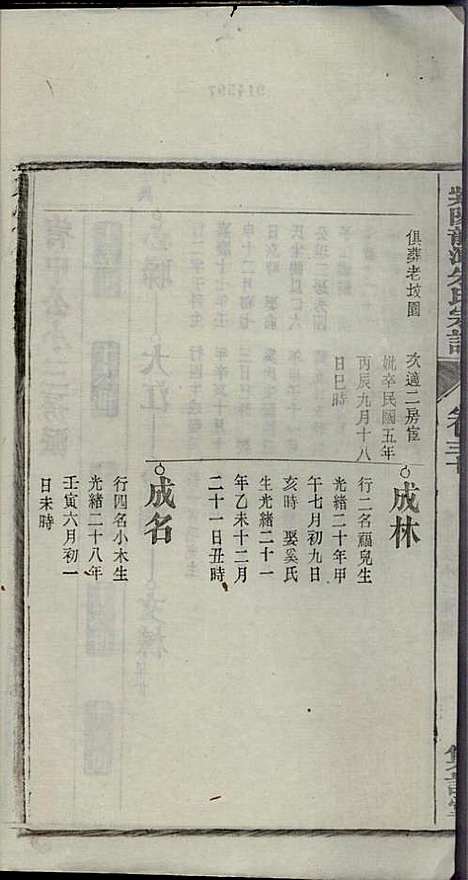 俱葬老坟園
次適二房宦
妣卒民國五年
丙辰九月十八
日巳時
成林
行二名福兒生
光緒二十年甲
午七月初九日
亥時 娶奚氏
生光緒二十一
年乙未十二月
二十一日丑時
成名
行四名小木生
光緒二十八年
壬寅六月初一
日未時